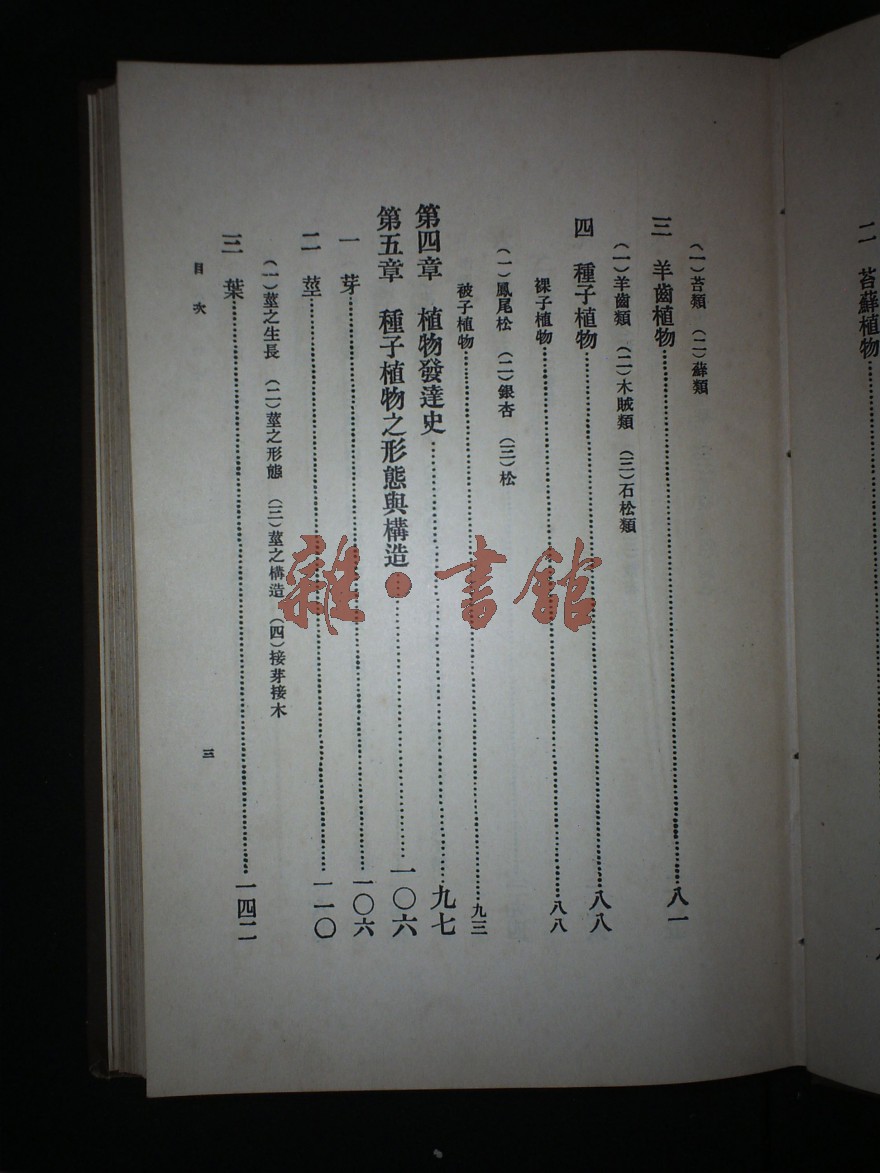 二 苔蘚植物
(一)苔類 (二)蘚類
三 羊齒植物……八一
(一)羊齒類 (二)木賊類 (三)石松類
四 種子植物……八八
裸子植物……八八
(一)鳳尾松 (二)銀杏 (三)松
被子植物……九三
第四章 植物發達史……九七
第五章 種子植物之形態與構造……一〇六
一 芽……一〇六
二 莖……一一〇
(一)莖之生長 (二)莖之形態 (三)莖之構造 (四)接芽接木
三 葉……一四二
目次
三
雜·書館